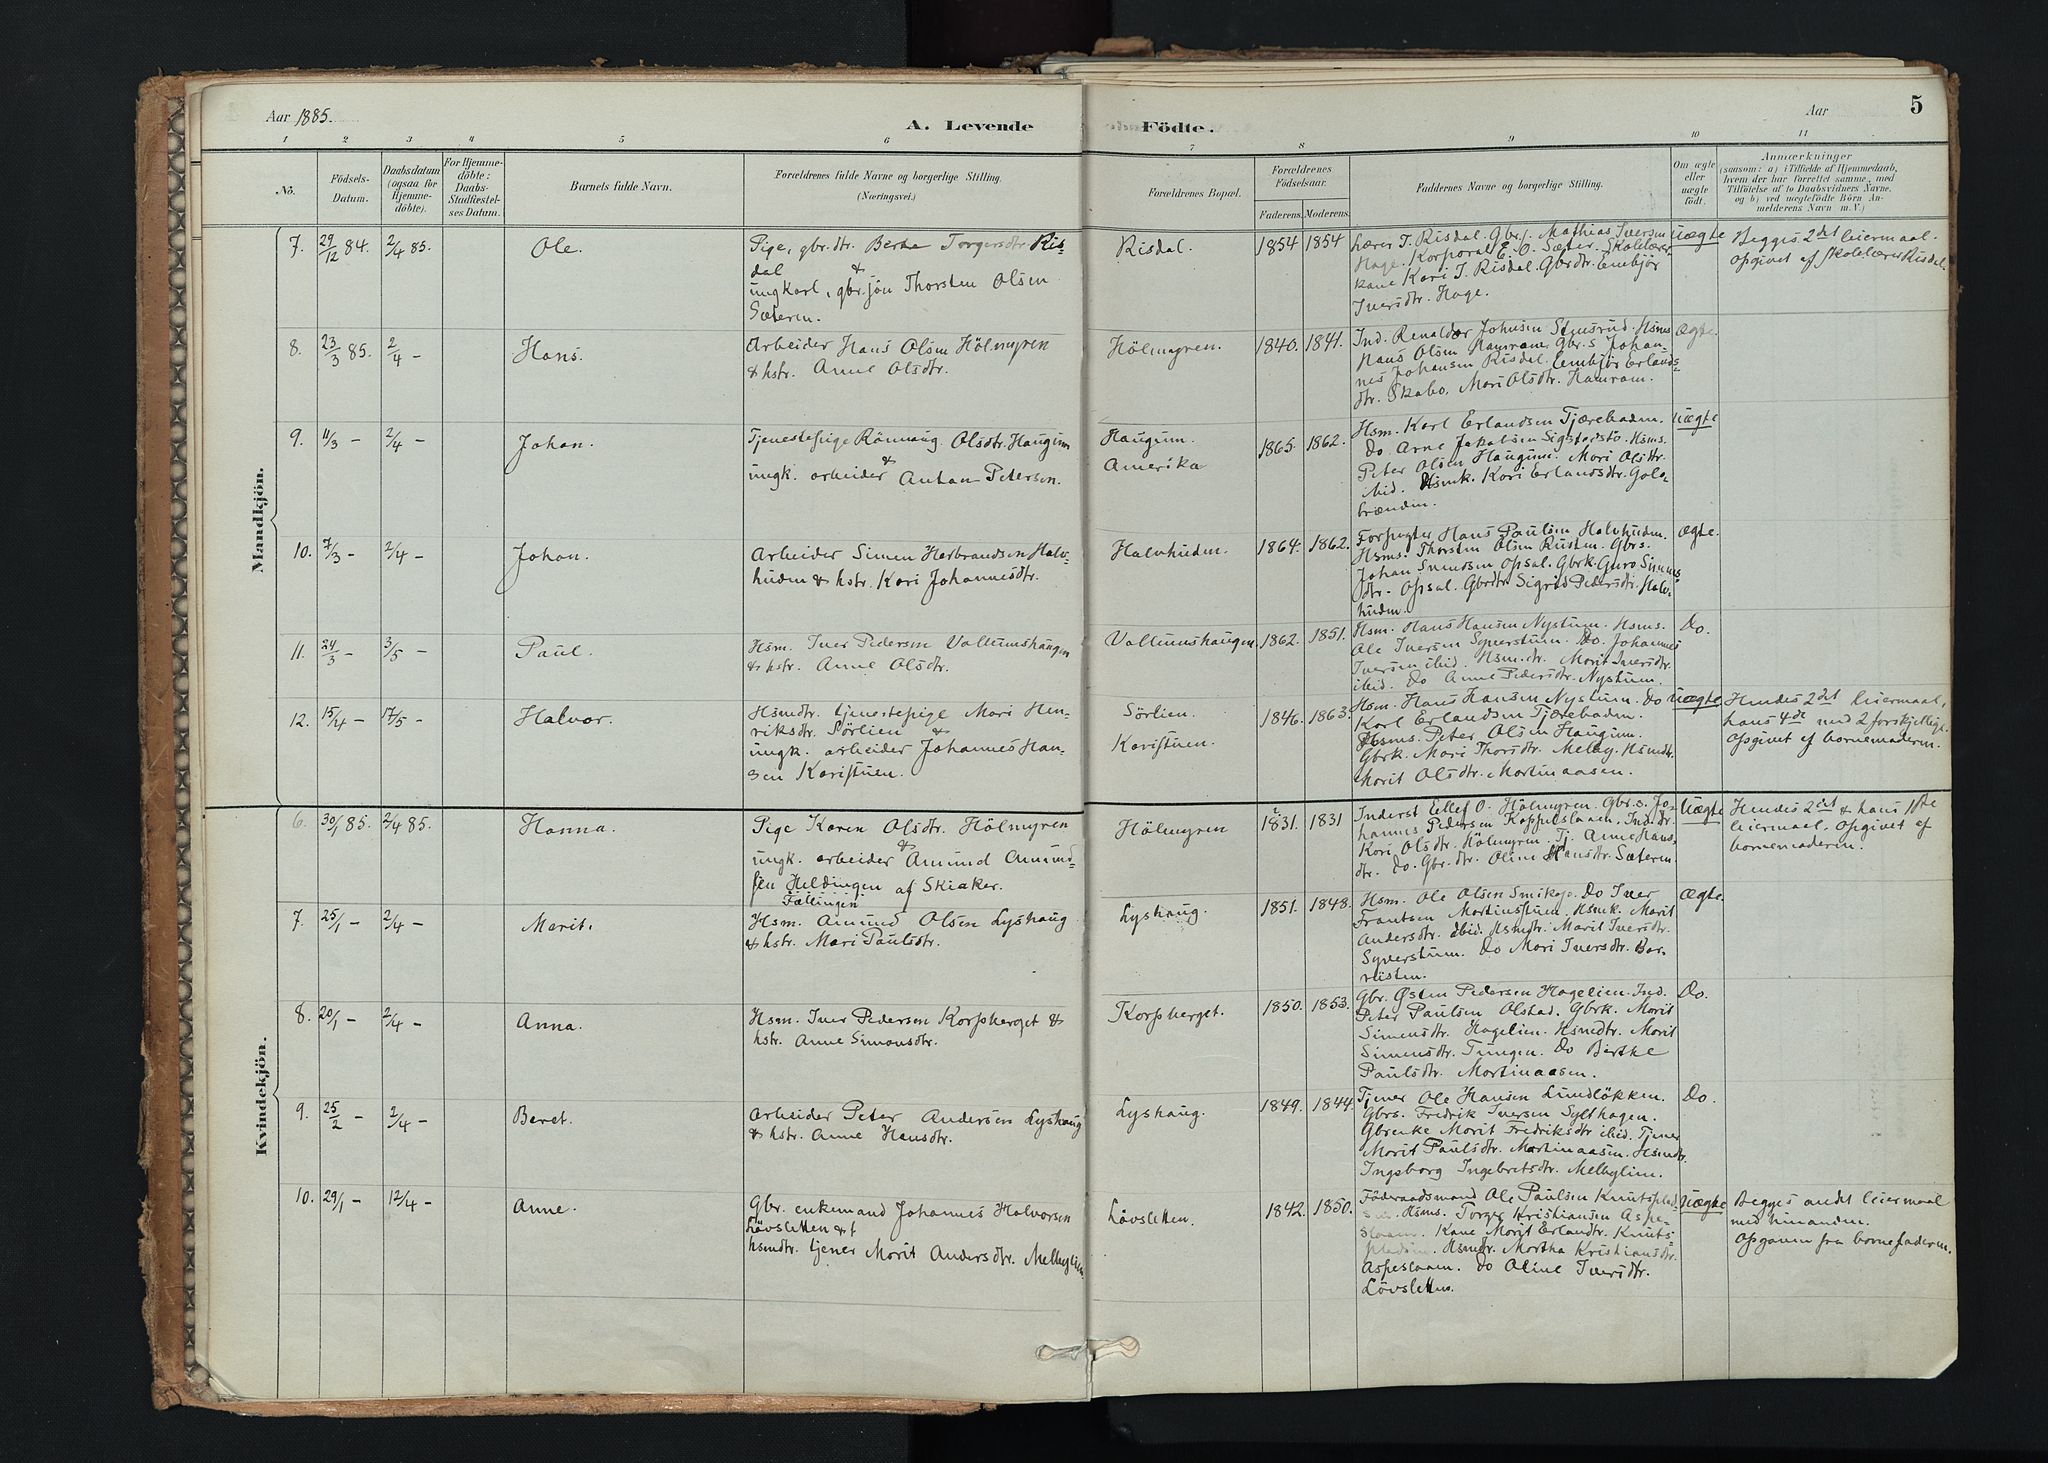 Aar 1885.
A. Levende Födte.
Aar
5
1 2 3 4 5 6 7 8 9 10 11
Nö.
Födsels-
Datum.
Daabsdatum
(ogsaa for
Hjemme-
döbte).
For Hjemme-
döbte:
Daabs-
Stadfæstel-
ses Datum.
Barnets fulde Navn.
Forældrenes fulde Navne og borgerlige Stilling.
(Næringsvei.)
Forældrenes Bopæl.
Forældrenes
Födselsaar.
Faderens. Moderens.
Faddernes Navne og borgerlige Stilling.
Om ægte
eller
uægte
födt.
Anmærkninger
(saasom: a) i Tilfælde af Hjemmedaab,
hvem der har forrettet samme, med
Tilföielse af to Daabsvidners Navne,
og b) ved uægtefödte Börn An-
melderens Navn m. V.)
Mandkjön.
7. 29/12 84. 2/4 85. Ole.
Pige, gbr.dtr. Berthe Torgersdtr Ris-
dal
&
ungkarl, gbr.sön Thorsten Olsen
Sæteren.
Risdal. 1854 1854
Lærer T. Risdal. Gbr. Mathias Iversen
Hage. Korporal E. O. Sæter. Skolelærer-
kone Kari T. Risdal. Gbrdtr. Embjör
Iversdtr. Hage.
Uægte
Begges 2det leiermaal.
Opgivet af Skolelærer Risdal.
8. 23/3 85. 2/4 – Hans.
Arbeider Hans Olsen Hölmyren
& hstr. Anne Olsdtr.
Hölmyren. 1840. 1841.
Ind. Renaldør Johnsen Stensrud. Hsms
Hans Olsen Hamram. Gbr.s Johan-
nes Johansen Risdal. Embjör Erlands-
dtr. Skabo. Mari Olsdtr. Hamram.
Ægte.
9. 11/3 – 2/4 – Johan.
Tjenestepige Rönnaug Olsdtr. Haugum
&
ungk. arbeider Anton Petersen.
Haugum.
Amerika
1865. 1862.
Hsm. Karl Erlandsen Tjærebaden.
Do Arne Jakobsen Sigstadstö. Hsms.
Peter Olsen Haugum. Mari Olsdtr.
ibid. Hsmk. Kari Erlandsdtr. Gols-
brænden.
Uægte
10. 7/3 – 2/4 – Johan.
Arbeider Simen Herbrandsen Halv-
huden & hstr. Kari Johannesdtr.
Halvhuden. 1864. 1862.
Forpagter Hans Paulsen Halvhuden.
Hsms. Thorsten Olsen Rusten. Gbrs.
Johan Svendsen Opsal. Gbrk. Guro Simens-
dtr. Opsal. Gbrdtr. Sigrid Pedersdtr. Halv-
huden.
Ægte.
11. 24/3 – 3/5 – Paul.
Hsm. Iver Pedersen Vallumshaugen
& hstr. Anne Olsdtr.
Vallumshaugen. 1862. 1851.
Hsm. Hans Hansen Nystum. Hsms.
Ole Iversen Syverstum. Do Johannes
Iversen ibid. Hsm.dtr. Marit Iversdtr.
ibid. Do Anne Pedersdtr. Nystum.
Do.
12. 15/4 – 17/5 – Halvor.
Hsmdtr. tjenestepige Mari Hen-
riksdtr. Sörlien &
ungk. arbeider Johannes Han-
sen Karistuen.
Sörlien.
Karistuen.
1846. 1863.
Hsm. Hans Hansen Nystum. Do
Karl Erlandsen Tjærebaden.
Hsms. Peter Olsen Haugum.
Gbrk. Mari Thorsdtr. Melby. Hsmdtr.
Marit Olsdtr. Martinaasen.
Uægte
Hendes 2det leiermaal,
hans 4de med 2 forskjellige.
Opgivet af barnemoderen.
Kvindekjön.
6. 30/1 85. 2/4 85. Hanna.
Pige Karen Olsdtr. Hölmyren
&
ungk. arbeider Amund Amund-
sen Heldingen af Skiaker.
Fællingen
Hölmyren 1831. 1831
Inderst Ellef O. Hölmyren. Gbr.s. Jo-
hannes Pedersen Koppelslaaen. Ind.dtr.
Kari Olsdtr. Hölmyren. Tj. Anne Hans-
dtr. do. Gbr.dtr. Oline Hansdtr. Sæteren.
Uægte
Hendes 2det & hans 1ste
leiermaal. Opgivet af
barnemoderen.
7. 25/1 – 2/4 – Marit.
Hsm. Amund Olsen Lyshaug
& hstr. Mari Paulsdtr.
Lyshaug. 1851. 1848.
Hsm. Ole Olsen Smikop. Do Iver
Frantsen Martinsstuen. Hsmk. Marit
Andersdtr. ibid. Hsmdtr. Marit Iversdtr.
Syverstum. Do Mari Iversdtr. Bar-
risten.
Ægte.
8. 20/1 – 2/4 – Anna.
Hsm. Iver Pedersen Korpberget &
hstr. Anne Simonsdtr.
Korpberget. 1850. 1853.
Gbr. Østen Pedersen Hagelien. Ind.
Peter Paulsen Olstad. Gbrk. Marit
Simensdtr. Hagelien. Hsmdtr. Marit
Simensdtr. Tungen. Do Berthe
Paulsdtr. Martinaasen.
Do.
9. 25/2 – 2/4 – Beret.
Arbeider Peter Andersen Lyshaug
& hstr. Anne Hansdtr.
Lyshaug. 1849. 1844.
Tjener Ole Hansen Lundlökken.
Gbrs. Fredrik Iversen Sylthagen.
Gbrenke Marit Fredriksdtr ibid. Tjener
Marit Paulsdtr. Martinaasen. Hsmdtr.
Ingeborg Ingebretsdtr. Melbylien.
Do.
10. 29/1 – 12/4 – Anne.
Gbr. enkemand Johannes Halvorsen
Lövsletten &
hsmdtr. tjener Marit Andersdtr. Melbylien
Lövsletten. 1842. 1850.
Föderaadsmand Ole Paulsen Knutsplad-
sen. Hsms. Torger Kristiansen Aspe-
slaaen. Kone Marit Erlandtr. Knuts-
pladsen. Hsmdtr. Martha Kristiansdtr.
Aspeslaaen. Do Oline Iversdtr.
Lövsletten.
Uægte
Begges andet leiermaal
med hinanden.
Opgaven fra barnefaderen.